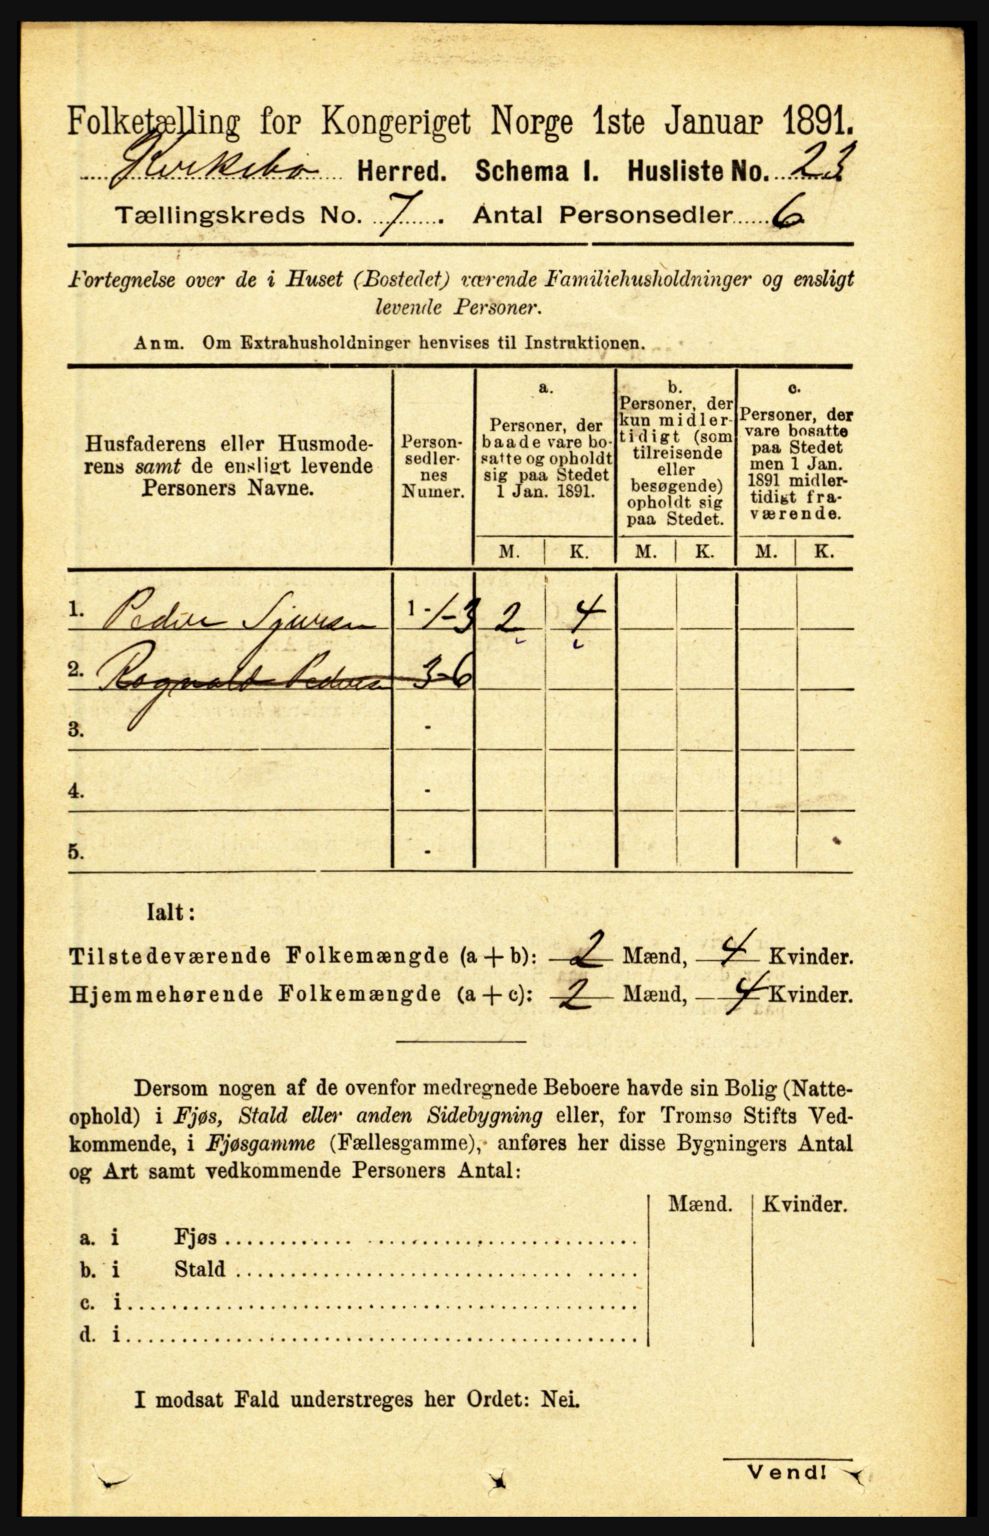 Folketælling for Kongeriget Norge 1ste Januar 1891.
Kirkebø Herred. Schema I. Husliste No. 23
Tællingskreds No. 7. Antal Personsedler 6
Fortegnelse over de i Huset (Bostedet) værende Familiehusholdninger og ensligt
levende Personer.
Anm. Om Extrahusholdninger henvises til Instruktionen.
Husfaderens eller Husmode-
rens samt de ensligt levende
Personers Navne.
Person-
sedler-
nes
Numer.
a.
Personer, der
baade vare bo-
satte og opholdt
sig paa Stedet
1 Jan. 1891.
b.
Personer, der
kun midler-
tidigt (som
tilreisende
eller
besøgende)
opholdt sig
paa Stedet.
c.
Personer, der
vare bosatte
paa Stedet
men 1 Jan.
1891 midler-
tidigt fra-
værende.
M. K. M. K. M. K.
1. Peder Sjursen 1-1-3 2 4
2. Ragnald Pedersen 3-6
3. -
4. -
5. -
Ialt:
Tilstedeværende Folkemængde (a+b): 2 Mænd, 4 Kvinder.
Hjemmehørende Folkemængde (a+c): 2 Mænd, 4 Kvinder.
Dersom nogen af de ovenfor medregnede Beboere havde sin Bolig (Natte-
ophold) i Fjøs, Stald eller anden Sidebygning eller, for Tromsø Stifts Ved-
kommende, i Fjøsgamme (Fællesgamme), anføres her disse Bygningers Antal
og Art samt vedkommende Personers Antal:
Mænd. Kvinder.
a. i Fjøs
b. i Stald
c. i
d. i
I modsat Fald understreges her Ordet: Nei.
Vend!